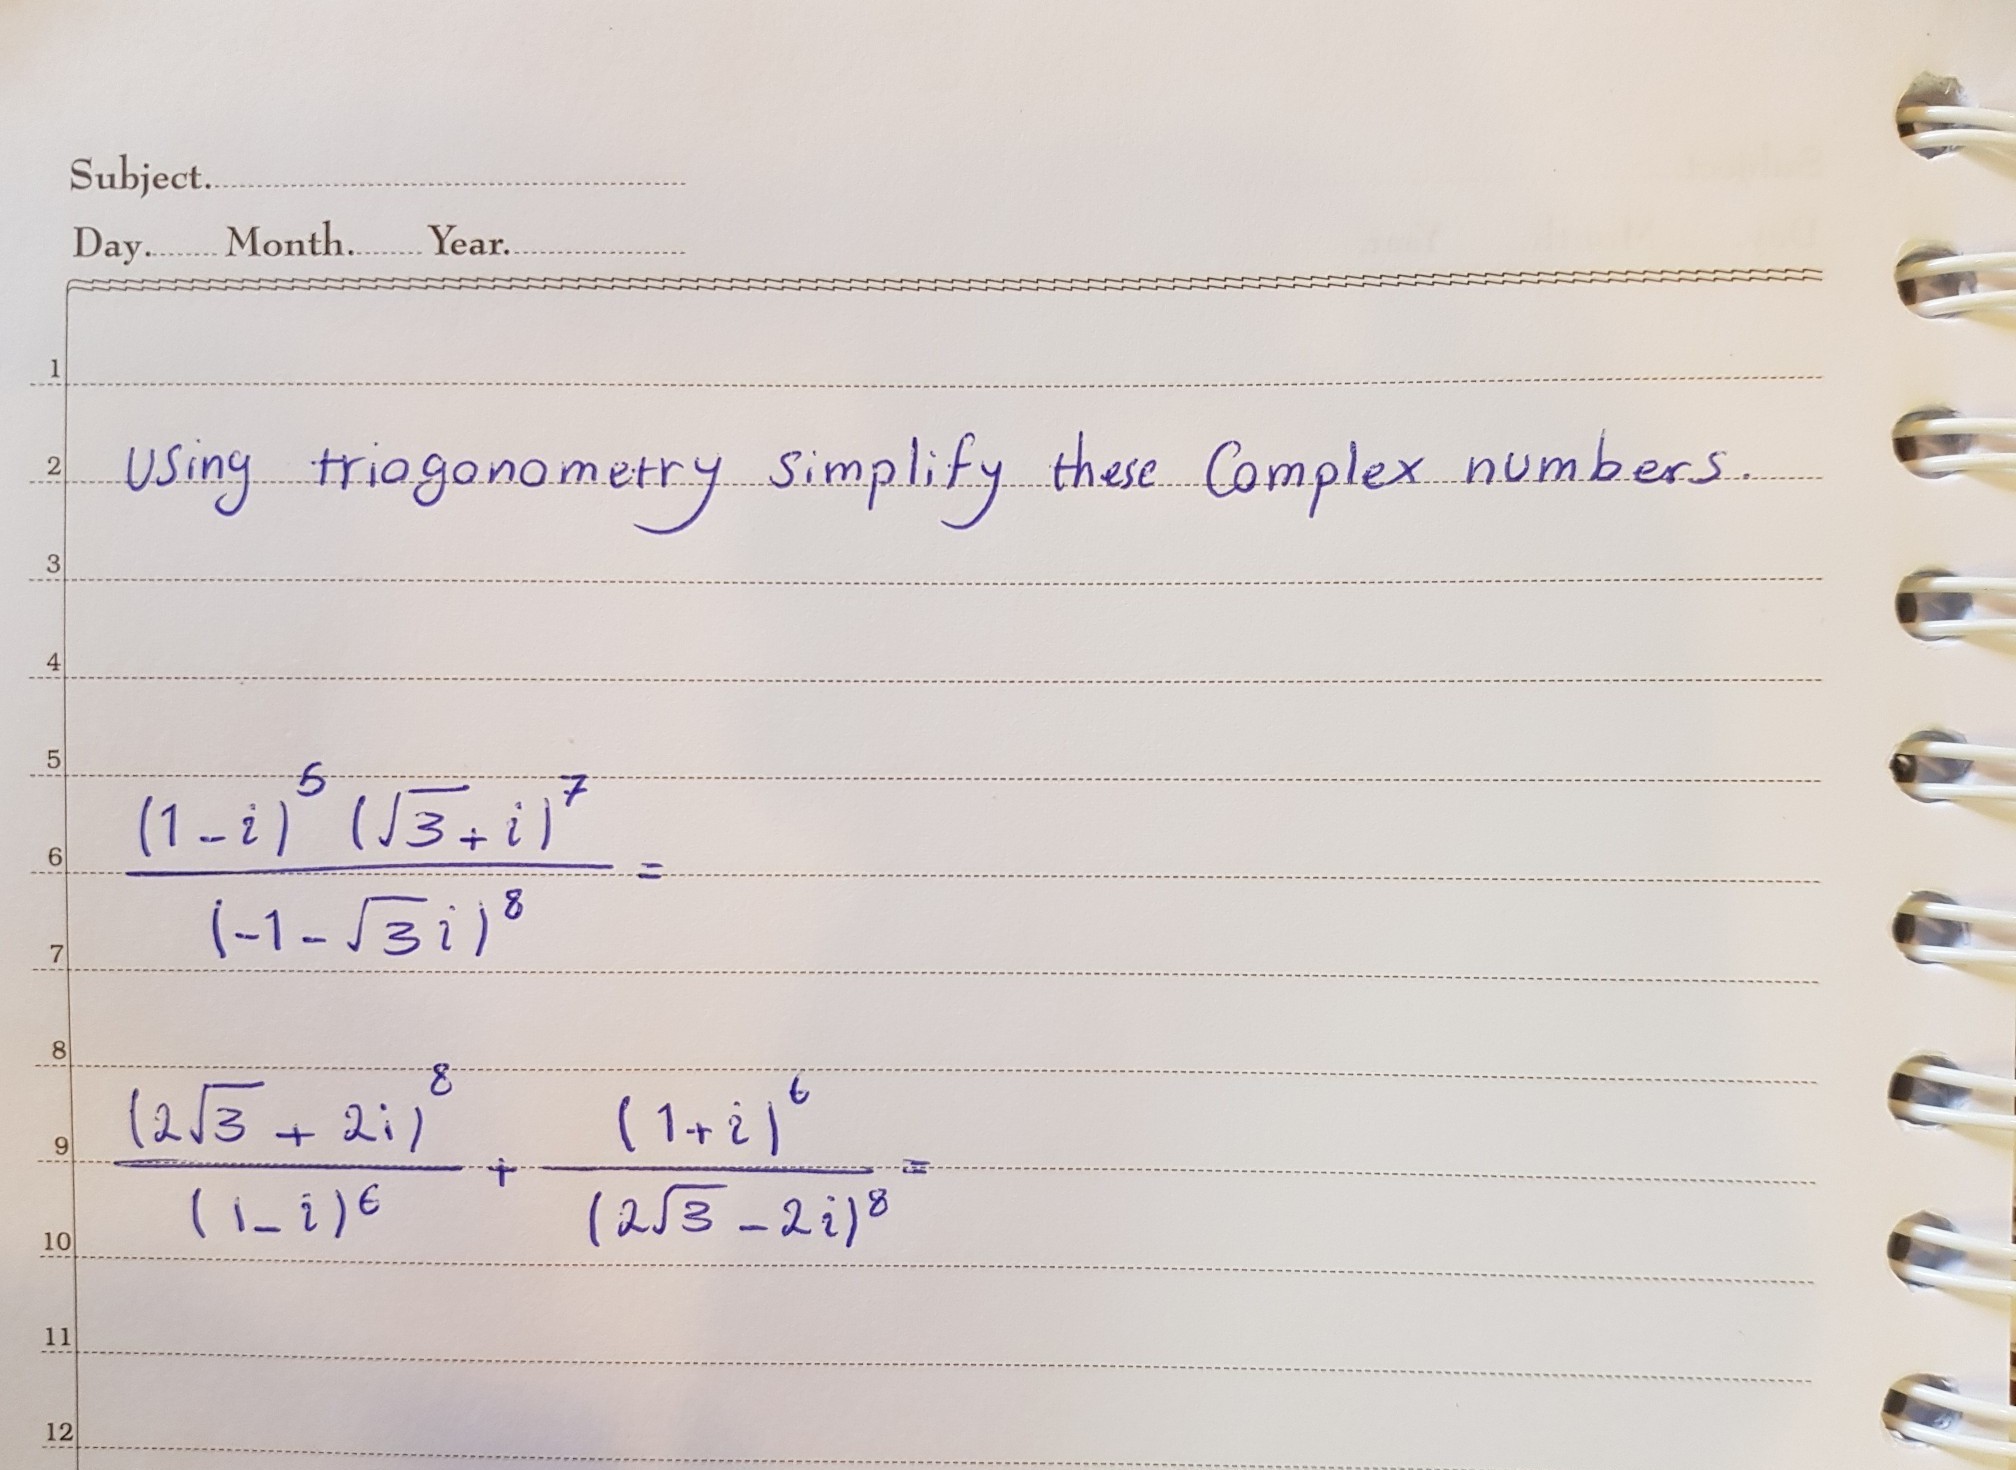 Subject.
Day. Month. Year.
1
2 Using triogonometry simplify these Complex numbers.
3
4
5
(1-i)^5 (√3+i)^7
6 =
(-1-√3i)^8
7
8
(2√3+2i)^8 (1+i)^6
9 + =
(1-i)^6 (2√3-2i)^8
10
11
12